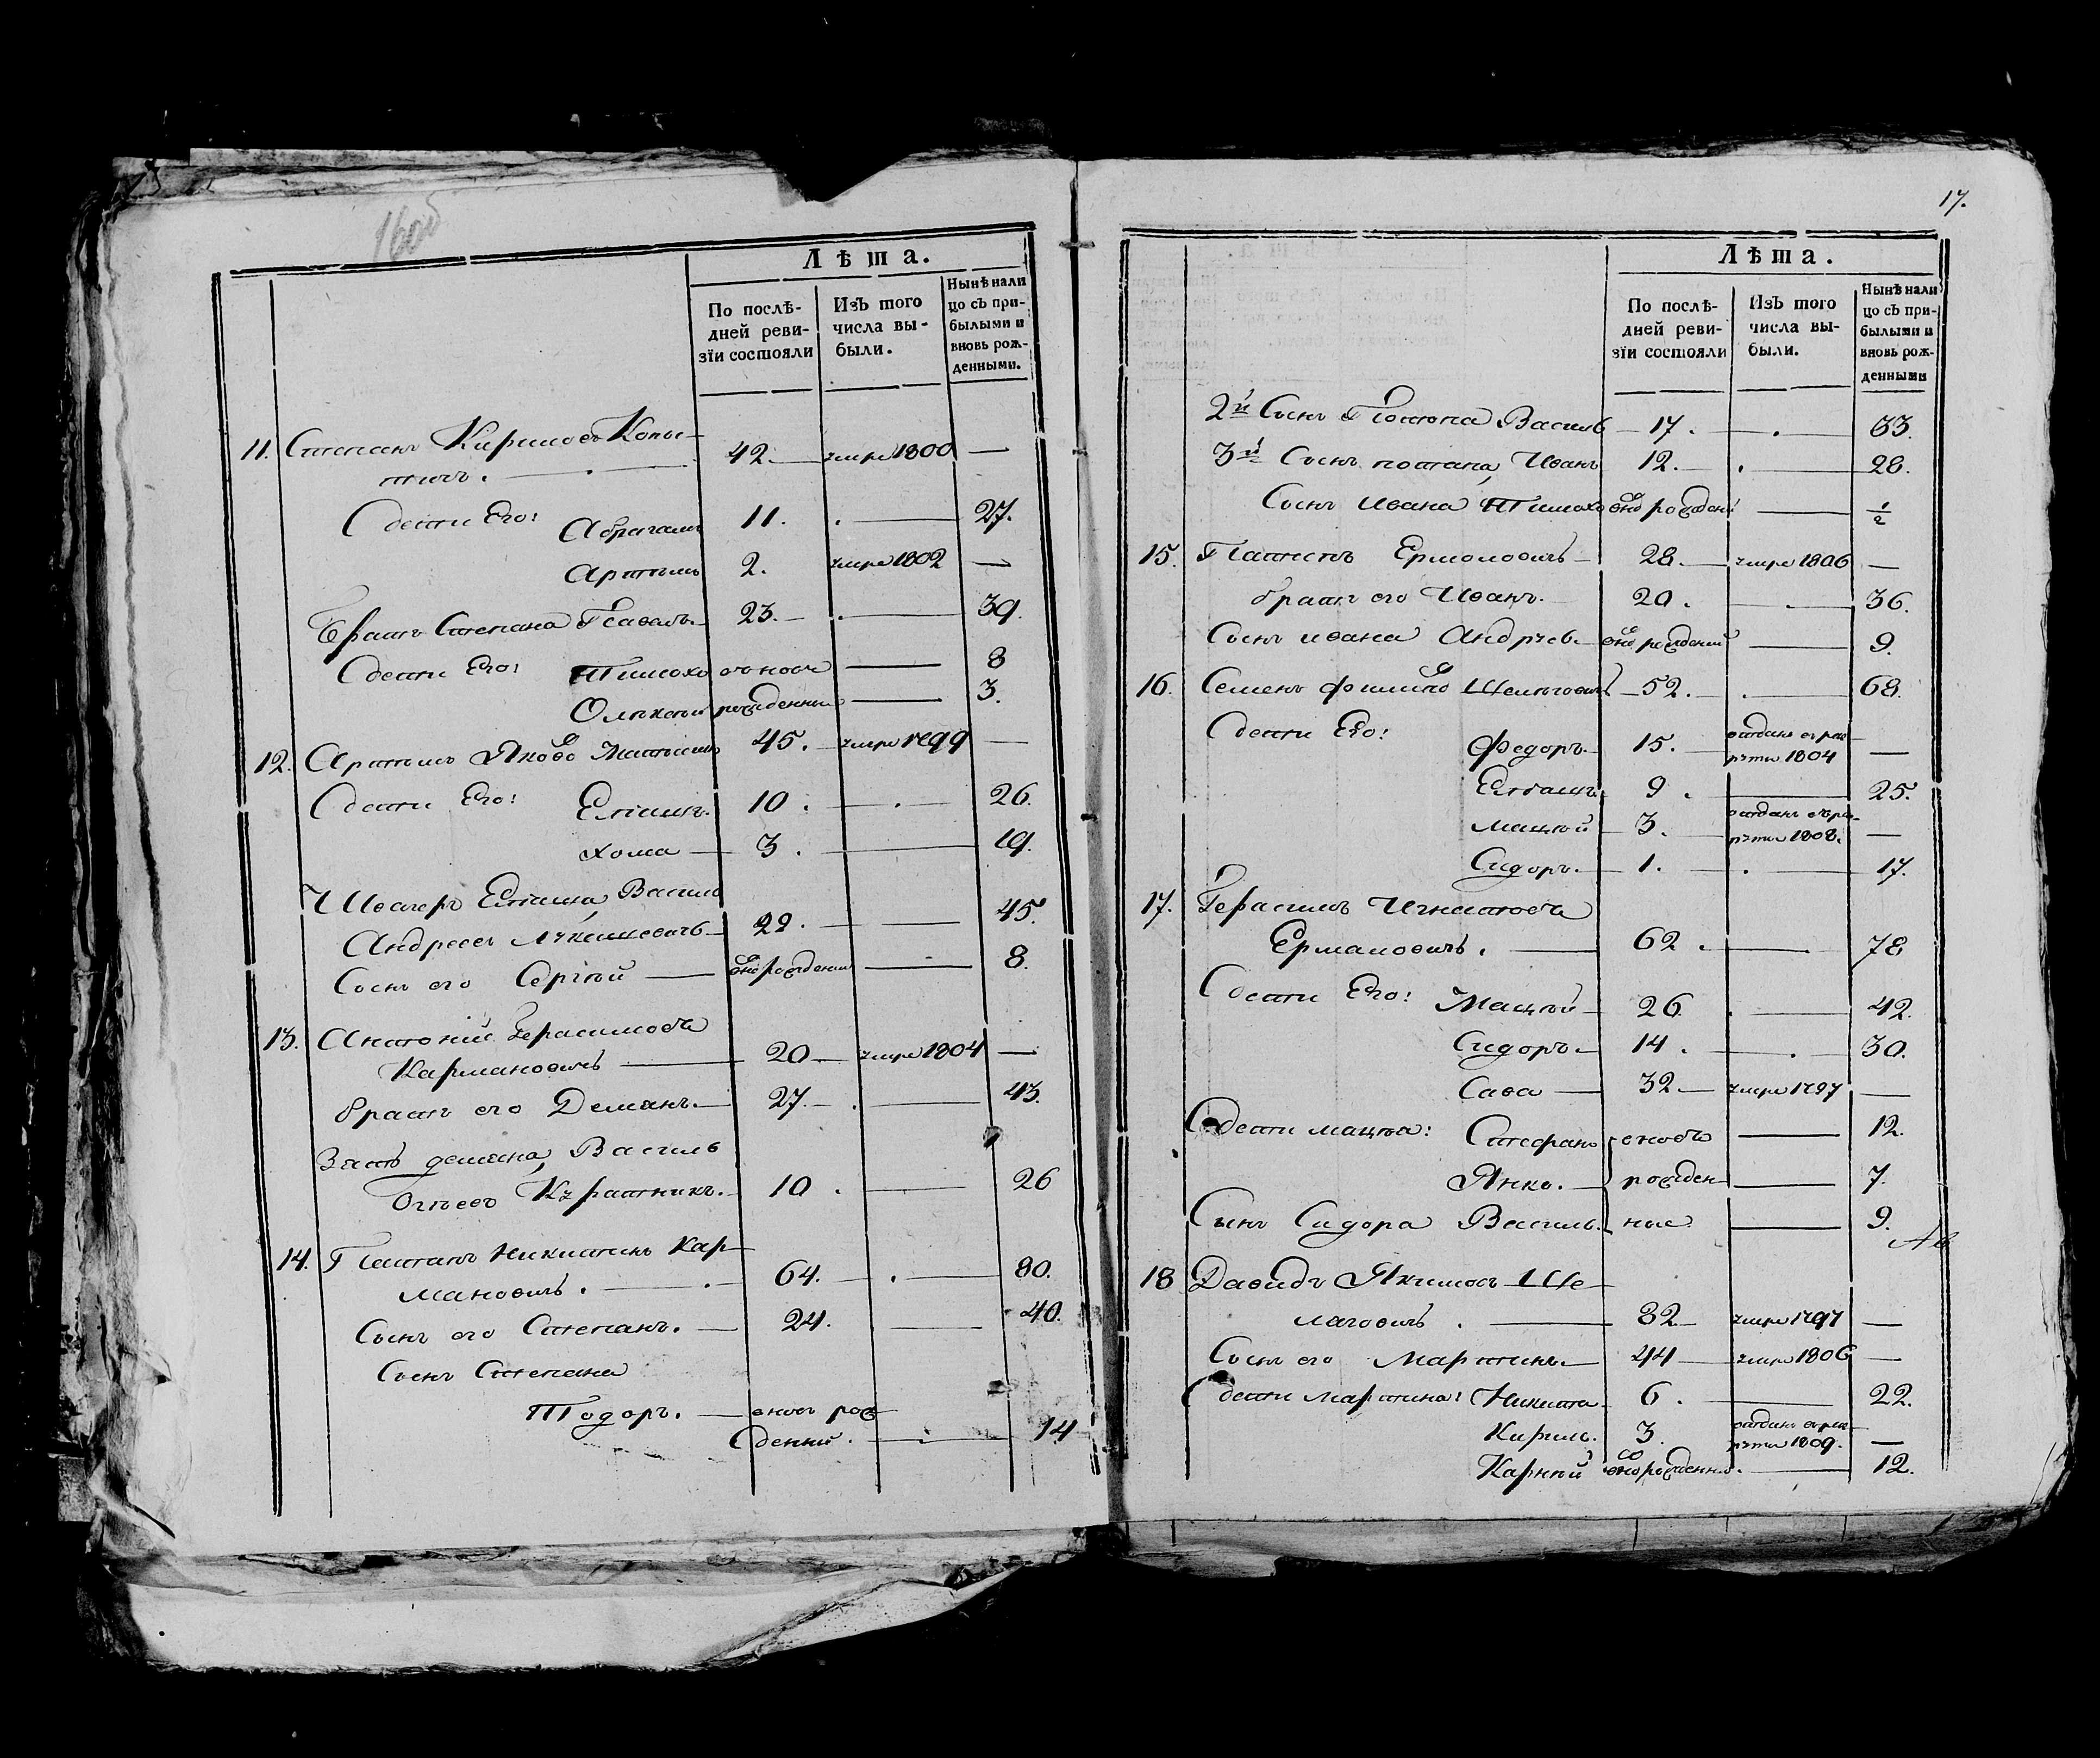 16об
Лѣта.
По послѣ-
дней реви-
зїи состояли
Изъ того
числа вы-
были.
Нынѣ нали
цо съ при-
былыми и
вновь рож-
денными.
11. Степанъ Кириловъ Копы-
42. умре 1800 —
тюкъ.
дети Его: Абрагамъ 11. — 27.
Артымъ 2. умре 1802 —
Братъ Степана Павалъ 23. — 39.
дети Его: Тимохо — 8
Олѣксѣй рожденныи — 3.
12. Артымъ Яково 45. умре 1799 —
дети Его: 10. — 26.
Хома — 3. — 19.
Швагеръ Василь
Андреевъ 29. — 45.
Сынъ его Сергѣй — вновь рожденни — 8.
13. Антоній Герасимовъ
Кармановичъ — 20 — умре 1804 —
братъ его Демянъ — 27. — 43.
Зять демяна, Василь
10. — 26
14. Потапъ Никитинъ Кар-
мановичъ. — 64. — 80.
Сынъ его Степанъ. — 24. — 40.
Сынъ Степана
Тодоръ. — вновь рож-
денни. — 14
17.
Лѣта.
По послѣ-
дней реви-
зїи состояли
Изъ того
числа вы-
были.
Нынѣ нали
цо съ при-
былыми и
вновь рож-
денными
2й Сынъ Потапа Василь — 17. — 33.
3й Сынъ потапа, Иванъ 12. — 28.
Сынъ Ивана Тимохо вно рожден — ½
15. Ермоловичъ — 28. — умре 1806 —
братъ его Иванъ. 20. — 36.
Сынъ ивана Андрѣев — вно рожденни — 9.
16. Семенъ Филипо — 52. — 68.
дети Его: Федоръ. — 15. — отданъ в рек-
рути 1804 —
9. — 25.
Мацѣй — 3. — отданъ в рек-
рути 1808. —
Сидоръ. — 1. — 17.
17. Герасимъ Игнатовъ
Ермаловичъ. — 62. — 78
дети Его: Мацѣй — 26. — 42.
Сидоръ. — 14. — 30.
Сава — 32 — умре 1797 —
дети мацѣя: Стефанъ вновь — 12.
Янко. — рожден — 7.
Сынъ Сидора Василь. ные — 9.
18 Давидъ Якимовъ Ще-
лаговичъ. — 82 — умре 1797 —
Сынъ его Мартинъ. — 44 — умре 1806 —
дети мартина: Никита 6. — 22.
Кирилъ. 3. отданъ в рек-
рути 1809. —
Карнѣй вно рожденни. — 12.